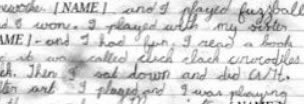 woke [NAME] and I played fuzball
d I won. I played with my sister
AME] - and I had fun. I read a book
it was called click clack crocodiles
ck. Then I sat down and did art.
ter art I played and I was playing